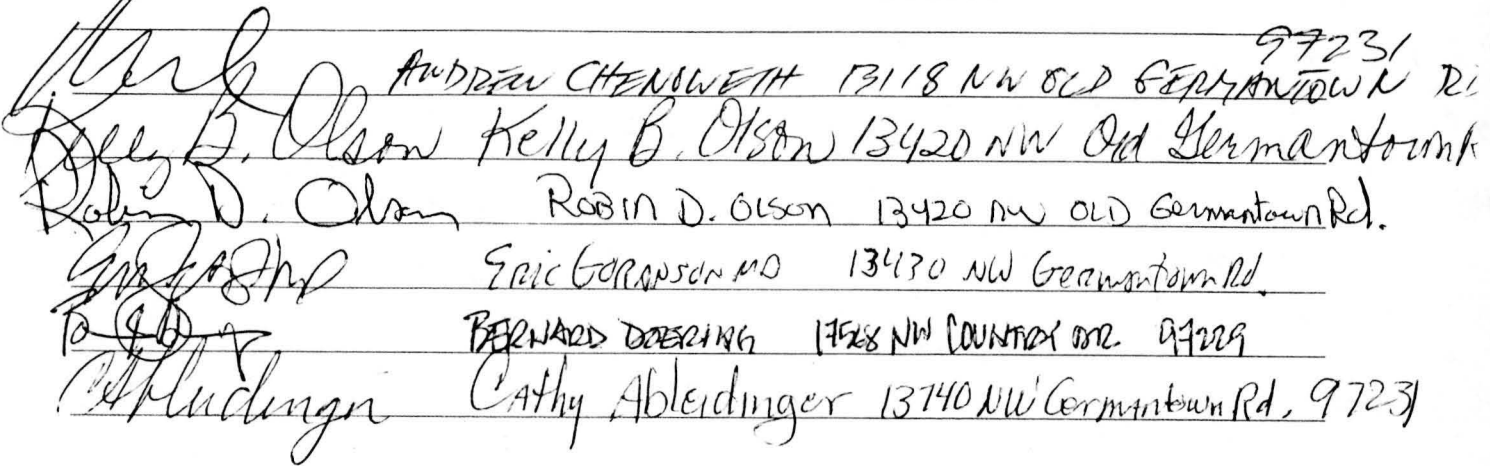 97231
ANDREW CHENOWETH 13118 NW OLD GERMANTOWN RD
Kelly B. Olson Kelly B. Olson 13420 NW Old Germantown R
Robin D. Olson ROBIN D. OLSON 13420 NW OLD Germantown Rd.
Eric GORANSON MD 13430 NW Germantown Rd.
BERNARD DOERING 17568 NW COUNTRY DR. 97229
CAbleidinger Cathy Ableidinger 13740 NW Germantown Rd. 97231